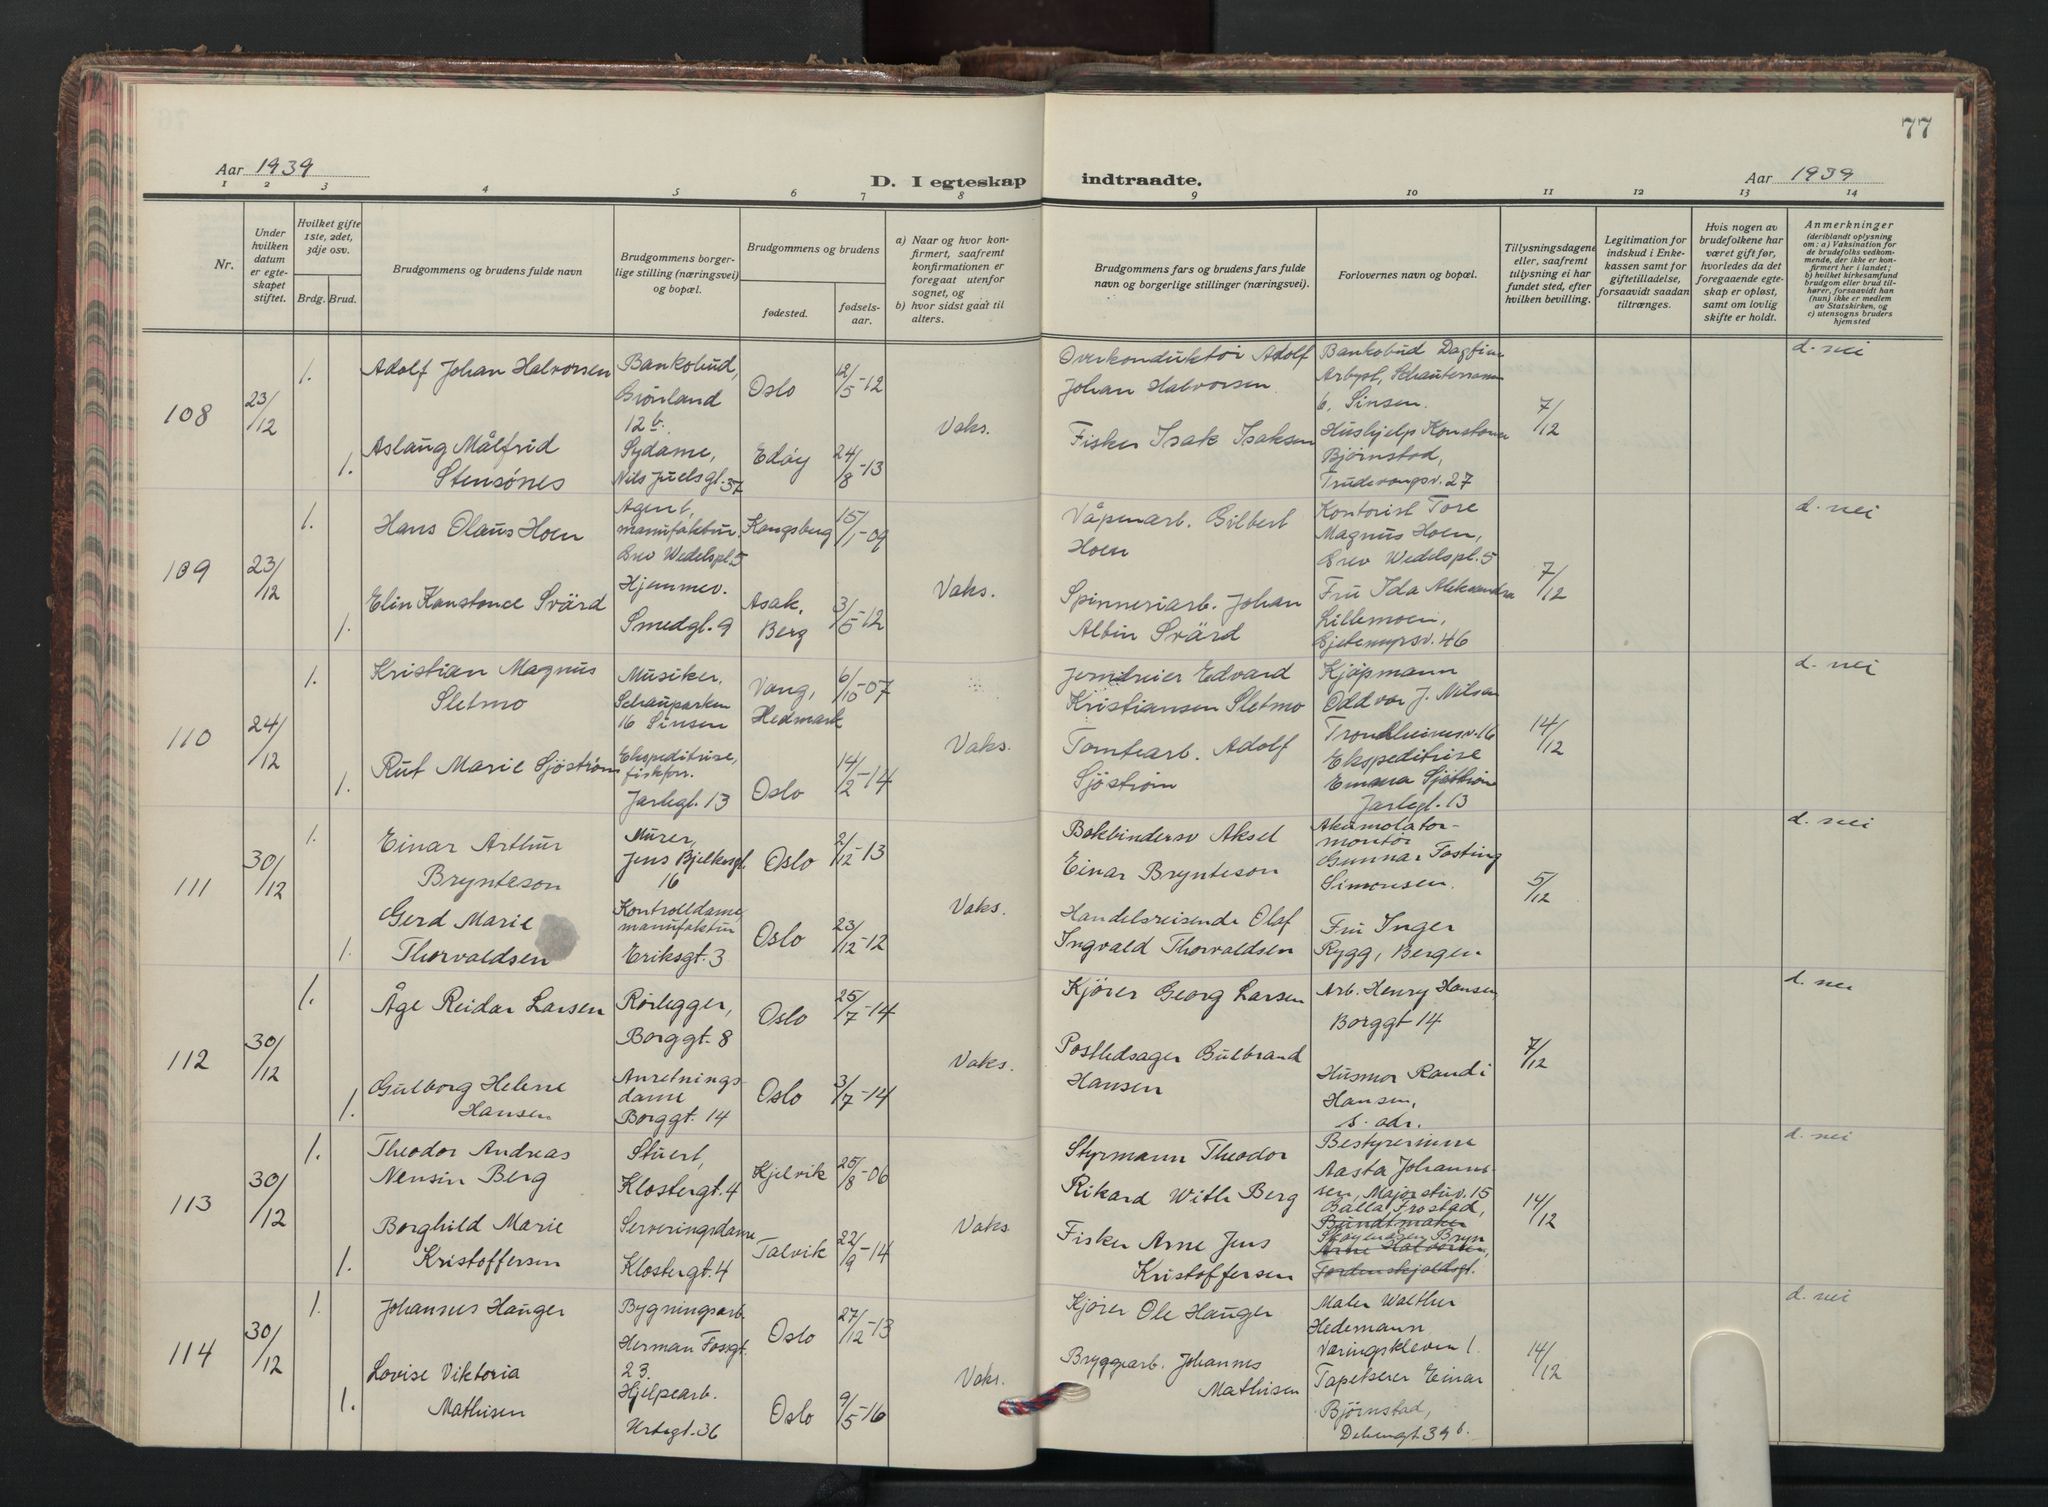 77
Aar 1939
D. I egteskap indtraadte.
Aar 1939
1 2 3 4 5 6 7 8 9 10 11 12 13 14
Nr.
Under hvilken datum er egteskapet stiftet.
Hvilket gifte 1ste, 2det, 3dje osv.
Brdg. Brud.
Brudgommens og brudens fulde navn
Brudgommens borgerlige stilling (næringsvei) og bopæl.
Brudgommens og brudens
fødested.
fødselsaar.
a) Naar og hvor konfirmert, saafremt konfirmationen er foregaat utenfor sognet, og
b) hvor sidst gaat til alters.
Brudgommens fars og brudens fars fulde navn og borgerlige stillinger (næringsvei).
Forlovernes navn og bopæl.
Tillysningsdagene eller, saafremt tillysning ei har fundet sted, efter hvilken bevilling.
Legitimation for indskud i Enkekassen samt for giftetilladelse, forsaavidt saadan tiltrænges.
Hvis nogen av brudefolkene har været gift før, hvorledes da det foregaaende egteskap er opløst, samt om lovlig skifte er holdt.
Anmerkninger
(deriblandt oplysning om: a) Vaksination for de brudefolks vedkommende, der ikke er konfirmert her i landet; b) hvilket kirkesamfund brudgom eller brud tilhører, forsaavidt han (hun) ikke er medlem av Statskirken, og c) utensogns bruders hjemsted
108
23/12
1.
Adolf Johan Halvorsen
Bankobud,
Grønland
12 b.
Oslo
12/5-12
Vaks.
Overkonduktør Adolf
Johan Halvorsen
Bankobud Dagfinn
6, Sinsen.
7/12
d. nei
1.
Aslaug Målfrid
Stensönes
Sydame,
Nils Juelsgt. 37
Edöy
24/8-13
Fisker Isak Isaksen
Hushjelp Konstanse
Bjørnstad,
27
109
23/12
1.
Hans Olaus Hoen
Agent,
manufaktur
Grev Wedelspl. 5
Kongsberg
15/1-09
Vaks.
Våpenarb. Gilbert
Hoen
Kontorist Tore
Magnus Hoen,
Grev Wedelspl. 5
7/12
d. nei
1.
Elin Konstance Svärd
Hjemmev.
Smedgt. 9
Asak,
Berg
3/5-12
Spinneriarb. Johan
Albin Svärd
Fru Ida Aleksandra
Lillemoen,
Gjetemyrsv. 46
110
24/12
1.
Kristian Magnus
Sletmo
Musiker,
Schauparken
16 Sinsen
Vang,
Hedmark
6/10-07
Vaks.
Jerndreier Edvard
Kristiansen Sletmo
Kjöpmann
Oddvar J. Nilsen
Trondheimsv. 16
14/12
d. nei
1.
Rut Marie Sjöström
Ekspeditrise,
fiskforr.
Jarlegt. 13
Oslo
14/2-14
Tomtearb. Adolf
Sjöström
Ekspeditrise
Emma Sjöström
Jarlegt. 13
111
30/12
1.
Einar Arthur
Brynteson
Murer,
Jens Bjelkesgt.
16
Oslo
2/12-13
Vaks.
Bokbindersv Aksel
Einar Brynteson
Akumolator-
montör
Gunnar Fosting
Simonsen.
5/12
d. nei
1.
Gerd Marie
Thorvaldsen
Kontrolldame
manufaktur
Eriksgt. 3
Oslo
23/12-12
Handelsreisende Olaf
Ingvald Thorvaldsen
Fru Inger
Rygg, Bergen
112
30/12
1.
Åge Reidar Larsen
Rørlegger,
Borggt. 8
Oslo
25/7-14
Vaks.
Kjører Georg Larsen
Arb. Henry Hansen
Borggt 14
7/12
d. nei
1.
Gulborg Helene
Hansen
Anretnings-
dame
Borggt. 14
Oslo
3/7-14
Postledsager Gulbrand
Hansen
Husmor Randi
Hansen,
s. adr.
113
30/12
1.
Theodor Andreas
Nensin Berg
Stuert,
Klostergt. 4
Kjelvik
25/8-06
Vaks
Styrmann Theodor
Rikard With Berg
Bestyrerinne
Aasta Johanns-
sen, Majorstuv. 15
14/12
d. nei
1.
Borghild Marie
Kristoffersen
Serveringsdame
Klostergt. 4
Talvik
22/9-14
Fisker Arne Jens
Kristoffersen
Balla Frostad,
Buntmaker
Bryn
Arne Halvorsen,
Tordenskjoldsgt.
114
30/12
1.
Johannes Hauger
Bygningsarb.
Herman Fossgt.
23.
Oslo
27/12-13
Vaks.
Kjører Ole Hauger
Maler Walther
Hedemann
Væringskleven 1.
14/12
d. nei
1.
Lovise Viktoria
Mathisen
Hjelpearb.
Urtegt. 36
Oslo
9/5-16
Bryggearb. Johannes
Mathisen
Tapetserer Einar
Bjørnstad,
39 b.